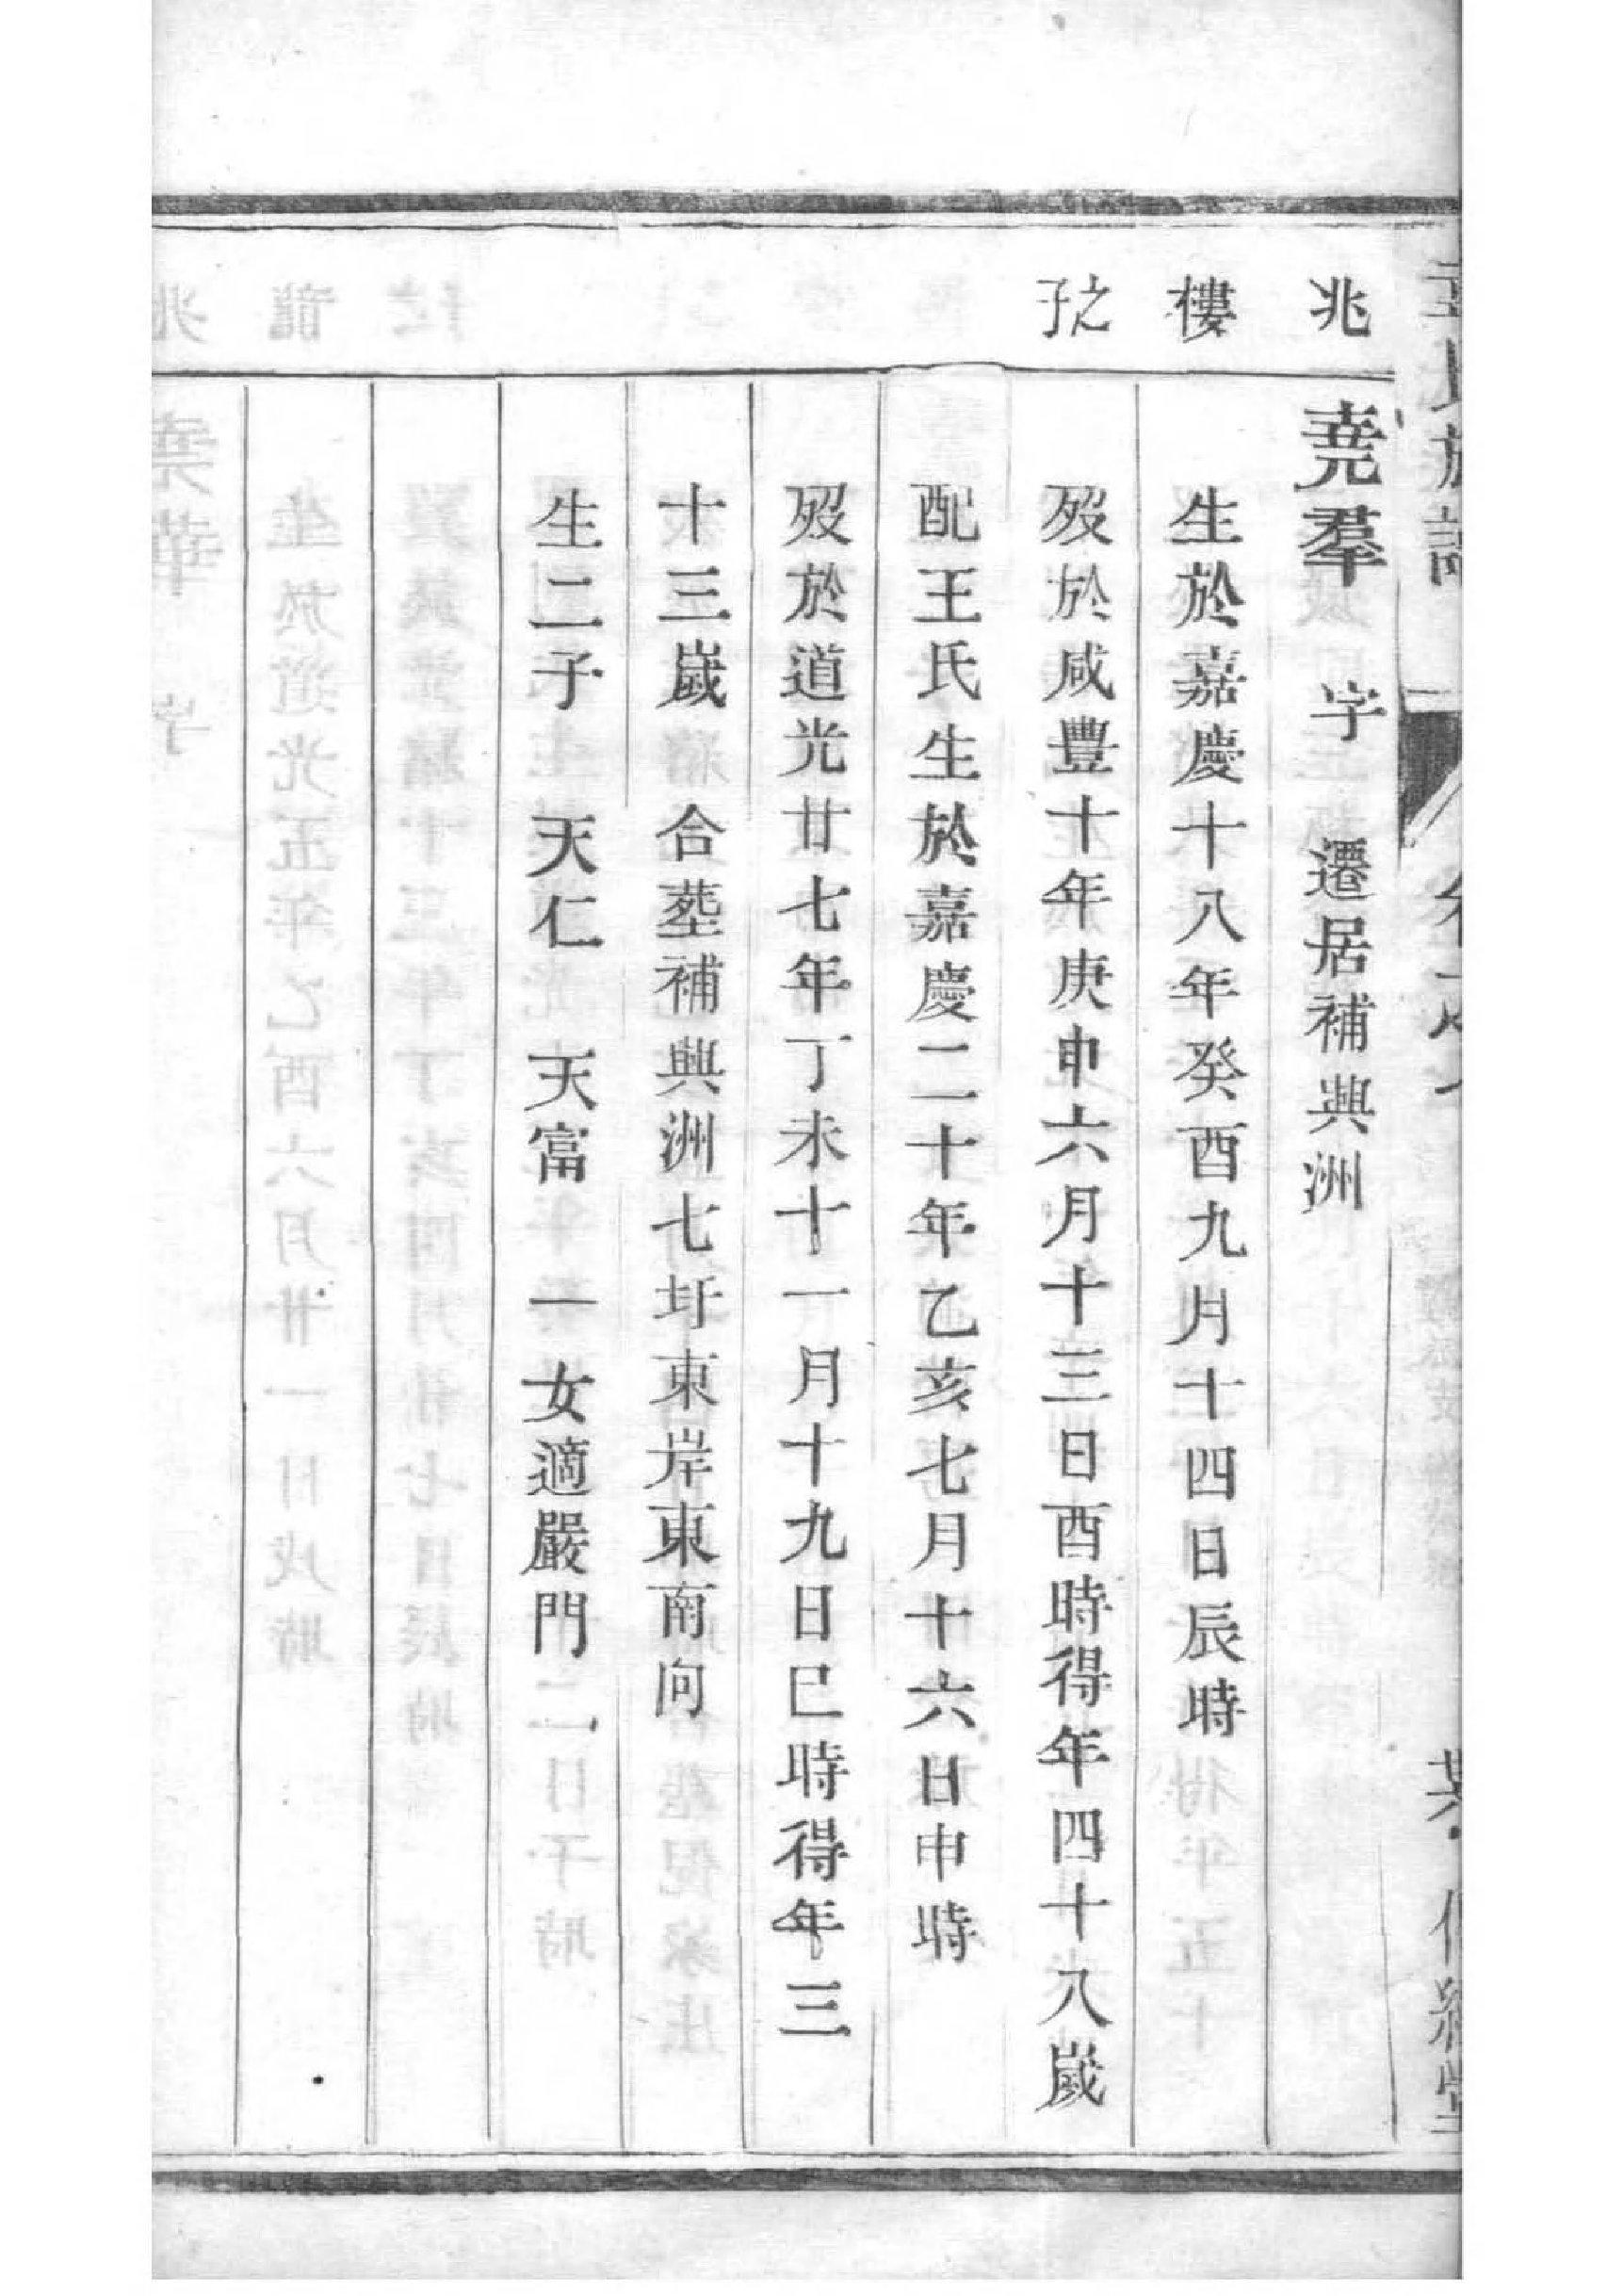 兆樓之子
堯羣　字　遷居補興洲
生於嘉慶十八年癸酉九月十四日辰時
歿於咸豐十年庚申六月十三日酉時得年四十八歲
配王氏生於嘉慶二十年乙亥七月十六日申時
歿於道光廿七年丁未十一月十九日巳時得年三
十三歲　合塟補興洲七圩東岸東南向
生二子　天仁　天富　一女適嚴門